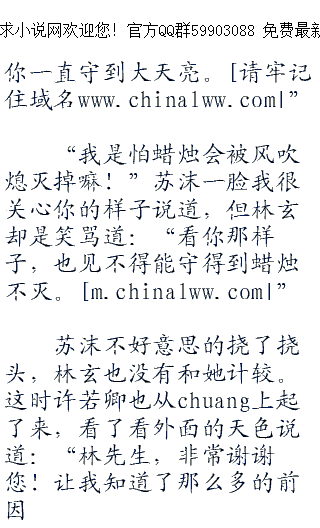 求小说网欢迎您! 官方QQ群59903088 免费最新
你一直守到大天亮。[请牢记
住域名www.china1ww.com|”
“我是怕蜡烛会被风吹
熄灭掉嘛！”苏沫一脸我很
关心你的样子说道，但林玄
却是笑骂道：“看你那样
子，也见不得能守得到蜡烛
不灭。[m.china1ww.com|”
苏沫不好意思的挠了挠
头，林玄也没有和她计较。
这时许若卿也从chuang上起
了来，看了看外面的天色说
道：“林先生，非常谢谢
您！让我知道了那么多的前
因